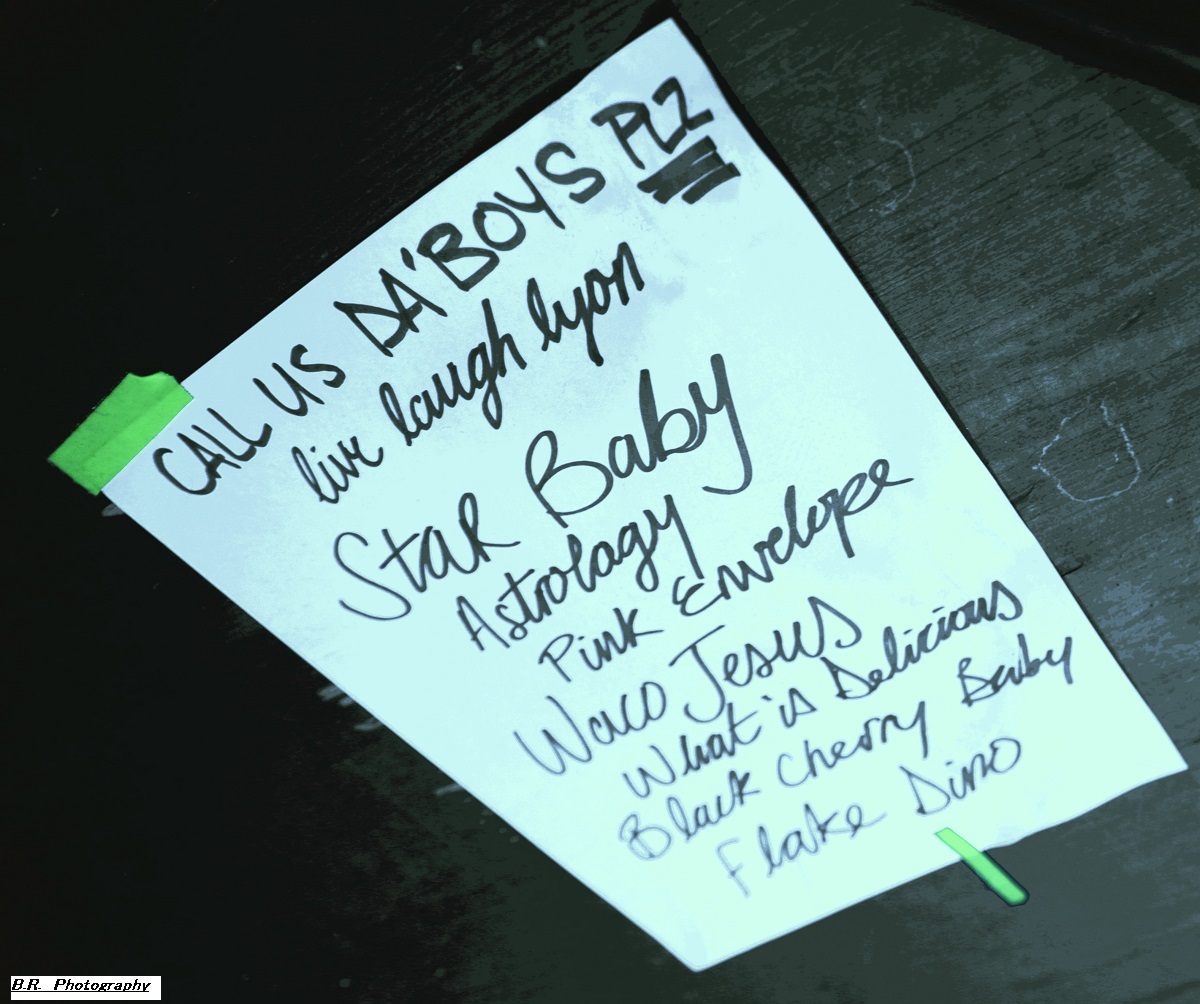 CALL US DA'BOYS PLZ
live laugh lyon
Star Baby
Astrology
Pink Envelope
Waco Jesus
What is Delicious
Black Cherry Baby
Flake Dino
B.R. Photography